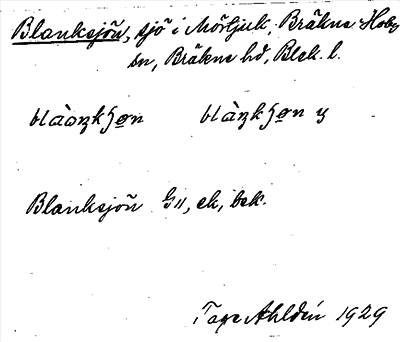 Blanksjön, sjö i Mörtjuk, Bräkne Hoby
sn, Bräkne hd, Blek. l.
Blanksjön G11, ek, bek.
Tage Ahldén 1929